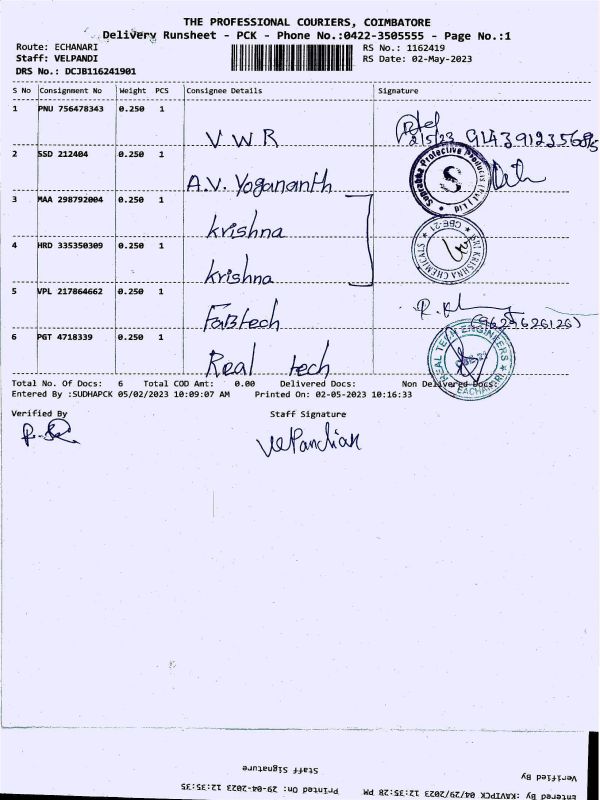 THE PROFESSIONAL COURIERS, COIMBATORE
Delivery Runsheet - PCK - Phone No.:0422-3505555 - Page No.:1
Route: ECHANARI
RS No.: 1162419
Staff: VELPANDI
RS Date: 02-May-2023
DRS No.: DCJB116241901
S No Consignment No Weight PCS Consignee Details Signature
1 PNU 756478343 0.250 1
VWR
2/5/23
2 SSD 212404 0.250 1
A.V. Yogananth
Suprabha Protective Products
S
3 MAA 298792004 0.250 1
krishna
SRI KRISHNA CHEMICALS
CBE-21
4 HRD 335350309 0.250 1
krishna
5 VPL 217864662 0.250 1
FaBtech
6 PGT 4718339 0.250 1
Real tech
REAL TECH ENGINEERS
EACHANARI
Total No. Of Docs: 6 Total COD Amt: 0.00 Delivered Docs: Non Delivered Docs:
Entered By :SUDHAPCK 05/02/2023 10:09:07 AM Printed On: 02-05-2023 10:16:33
Verified By Staff Signature
VelPandian
Verified By Staff Signature
Entered By: KAVIPCK 04/29/2023 12:35:28 PM Printed On: 29-04-2023 12:35:35